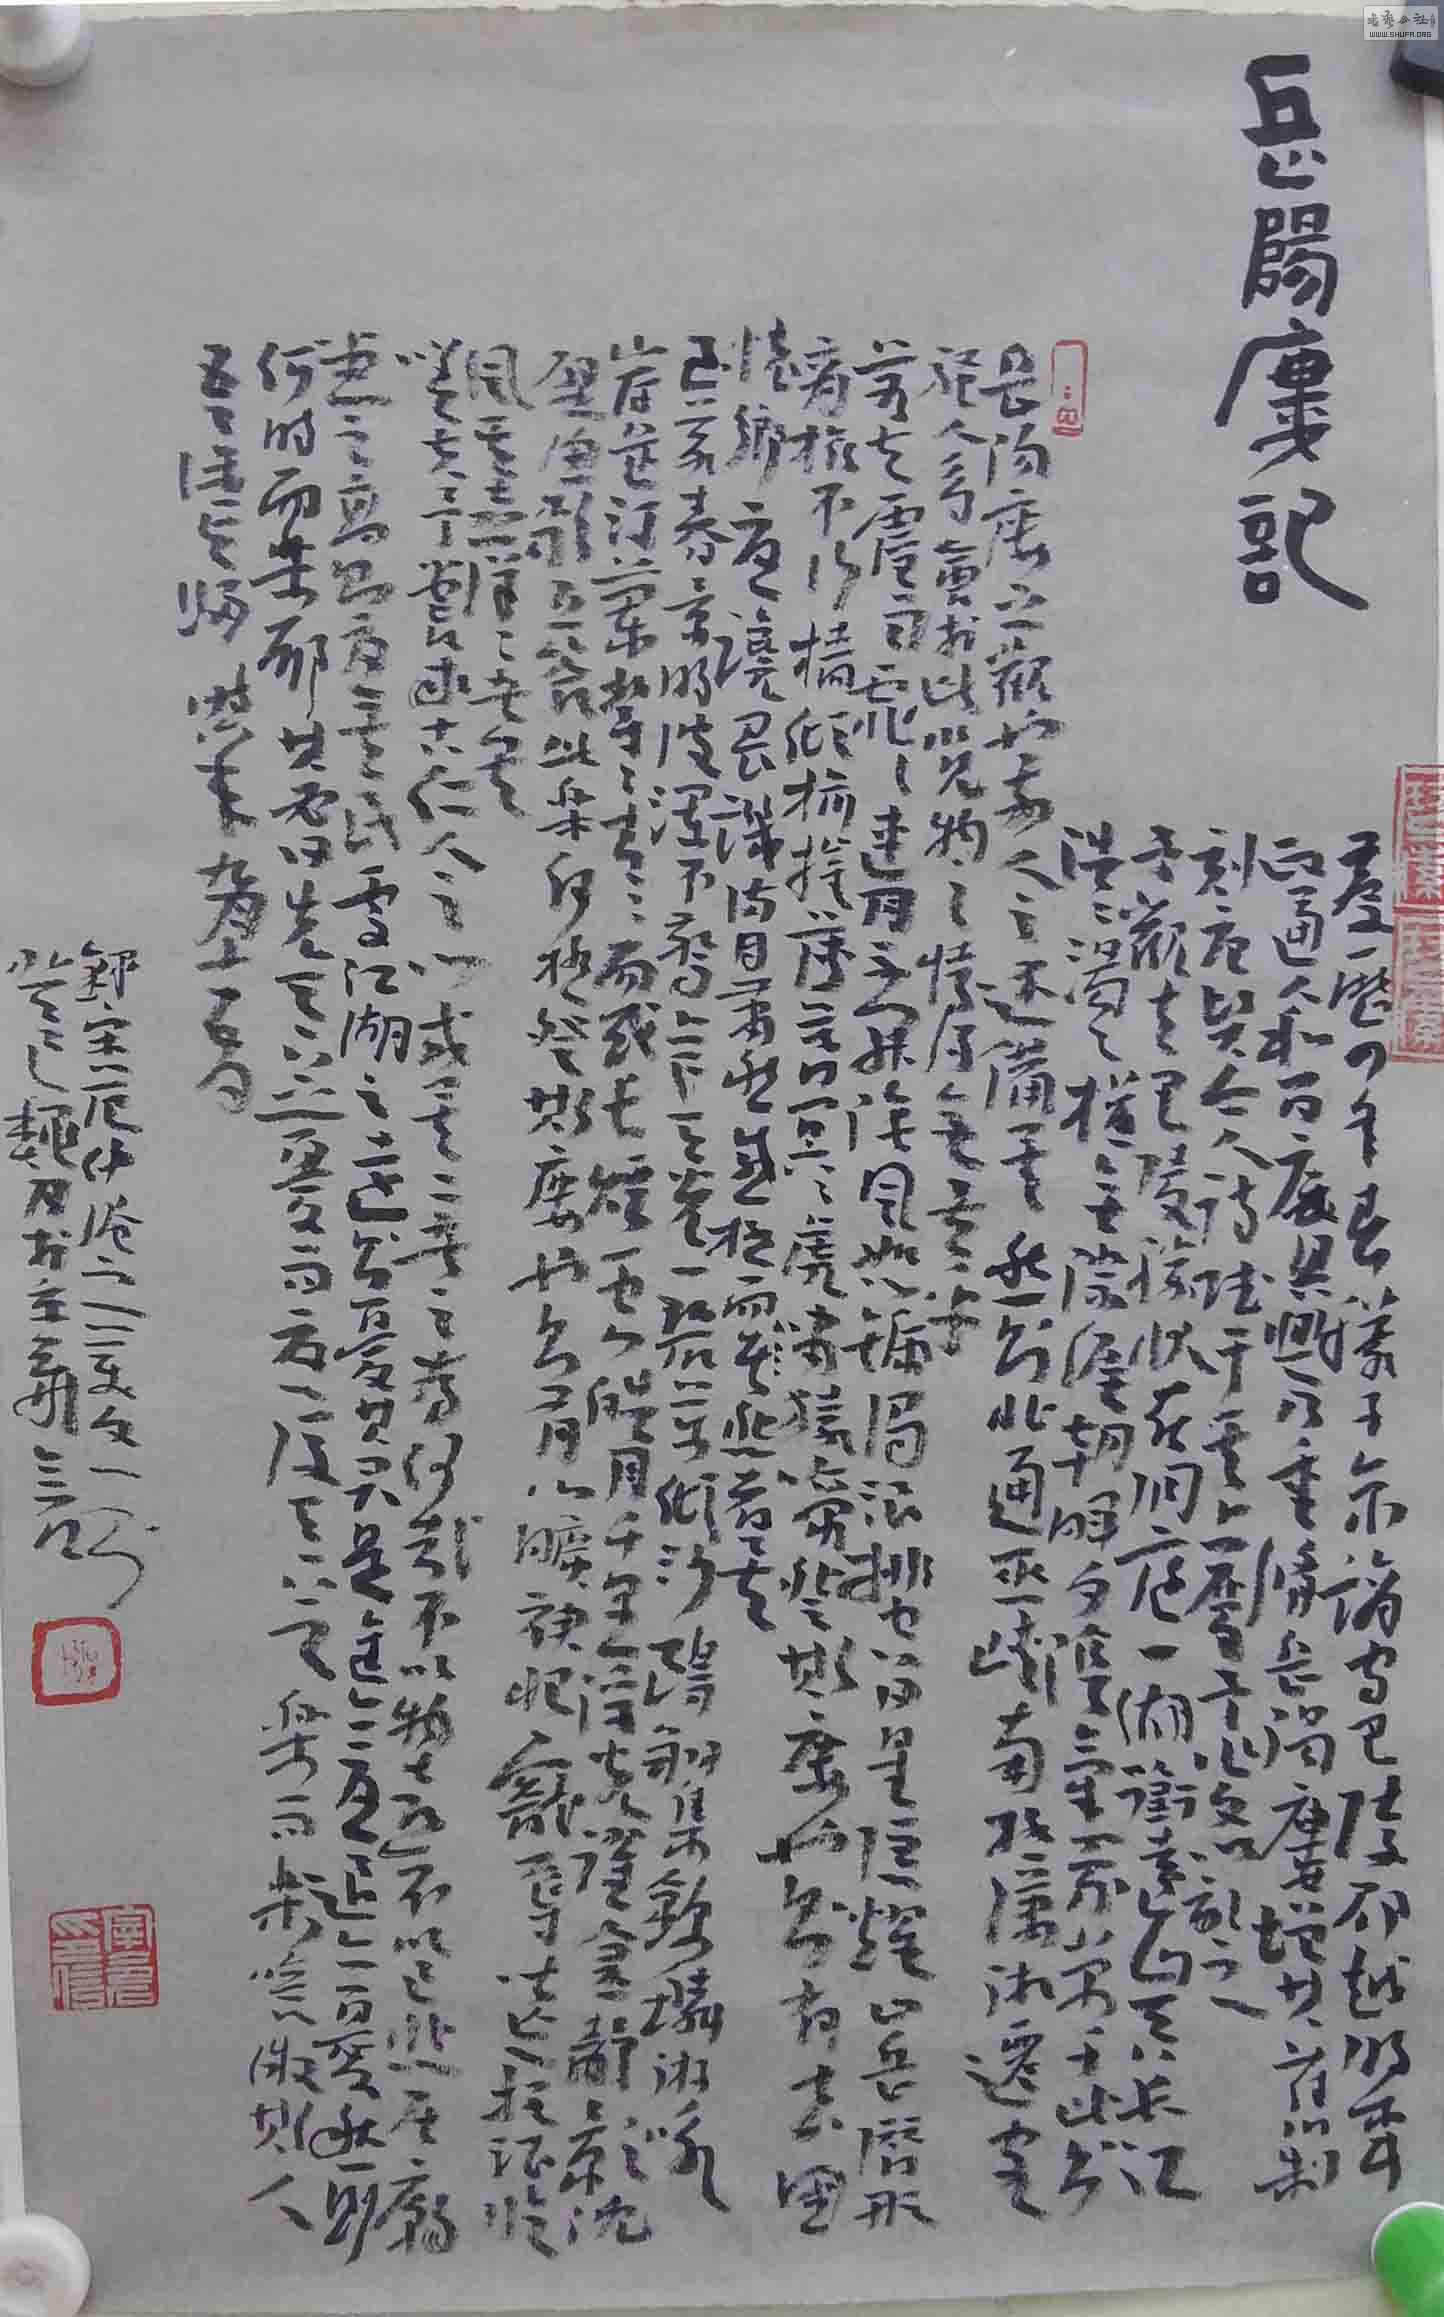 岳陽樓記
慶曆四年春滕子京謫守巴陵郡越明年
政通人和百廢具興乃重脩岳陽樓增其舊制
刻唐賢今人詩賦于其上屬予作文以記之
予觀夫巴陵勝狀在洞庭一湖銜遠山吞長江
浩浩湯湯橫無際涯朝暉夕陰氣象萬千此則
岳陽樓之大觀也前人之述備矣然則北通巫峽南極瀟湘遷客
騷人多會於此覽物之情得無異乎
若夫霪雨霏霏連月不開陰風怒號濁浪排空日星隱耀山岳潛形
商旅不行檣傾楫摧薄暮冥冥虎嘯猿啼登斯樓也則有去國
懷鄉憂讒畏譏滿目蕭然感極而悲者矣
至若春和景明波瀾不驚上下天光一碧萬頃沙鷗翔集錦鱗游泳
岸芷汀蘭郁郁青青而或長煙一空皓月千里浮光躍金靜影沈
璧漁歌互答此樂何極登斯樓也則有心曠神怡寵辱皆忘把酒臨
風其喜洋洋者矣
嗟夫予嘗求古仁人之心或異二者之為何哉不以物喜不以己悲居廟
堂之高則憂其民處江湖之遠則憂其君是進亦憂退亦憂然則
何時而樂耶其必曰先天下之憂而憂後天下之樂而樂噫微斯人
吾誰與歸 時六年九月十五日
錄宋范仲淹之美文一
WWW.SHUFA.ORG